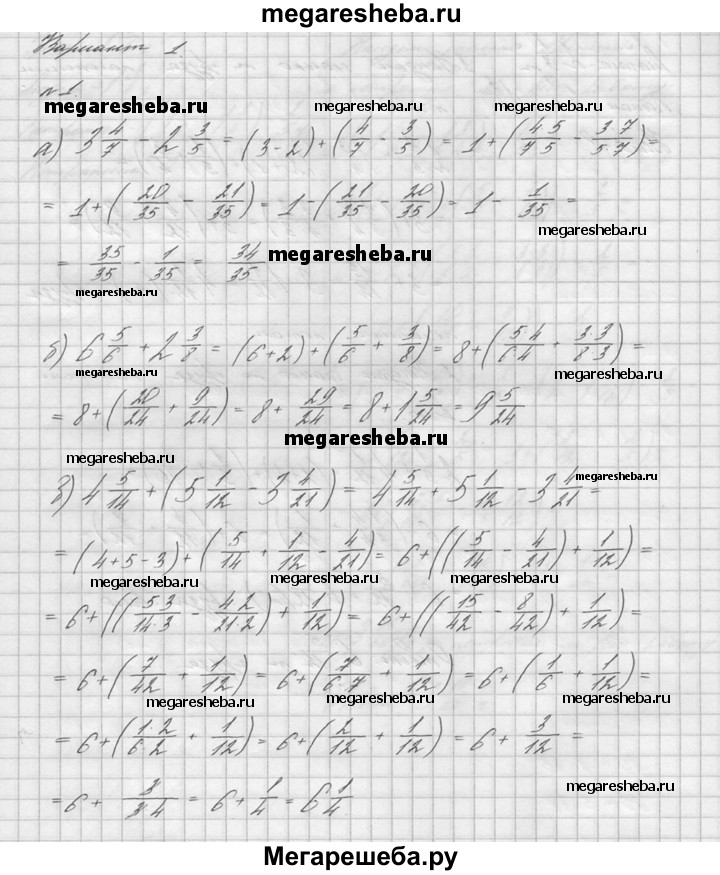 megaresheba.ru
Вариант 1
№1.
megaresheba.ru megaresheba.ru megaresheba.ru
а) 3 4/7 - 2 3/5 = (3-2)+(4/7 - 3/5) = 1+(4·5/7·5 - 3·7/5·7) =
= 1+(20/35 - 21/35) = 1-(21/35 - 20/35) = 1 - 1/35 =
megaresheba.ru
= 35/35 - 1/35 = 34/35
megaresheba.ru
megaresheba.ru
б) 6 5/6 + 2 3/8 = (6+2)+(5/6 + 3/8) = 8+(5·4/6·4 + 3·3/8·3) =
megaresheba.ru megaresheba.ru
= 8+(20/24 + 9/24) = 8 + 29/24 = 8+1 5/24 = 9 5/24
megaresheba.ru
megaresheba.ru
в) 4 5/14 + (5 1/12 - 3 4/21) = 4 5/14 + 5 1/12 - 3 4/21 =
megaresheba.ru
= (4+5-3)+(5/14 + 1/12 - 4/21) = 6+((5/14 - 4/21)+ 1/12) =
megaresheba.ru megaresheba.ru megaresheba.ru
= 6+((5·3/14·3 - 4·2/21·2)+ 1/12) = 6+((15/42 - 8/42)+ 1/12) =
= 6+(7/42 + 1/12) = 6+(7/6·7 + 1/12) = 6+(1/6 + 1/12) =
megaresheba.ru megaresheba.ru megaresheba.ru
= 6+(1·2/6·2 + 1/12) = 6+(2/12 + 1/12) = 6 + 3/12 =
megaresheba.ru
= 6 + 3/3·4 = 6 + 1/4 = 6 1/4
Мегарешеба.ру